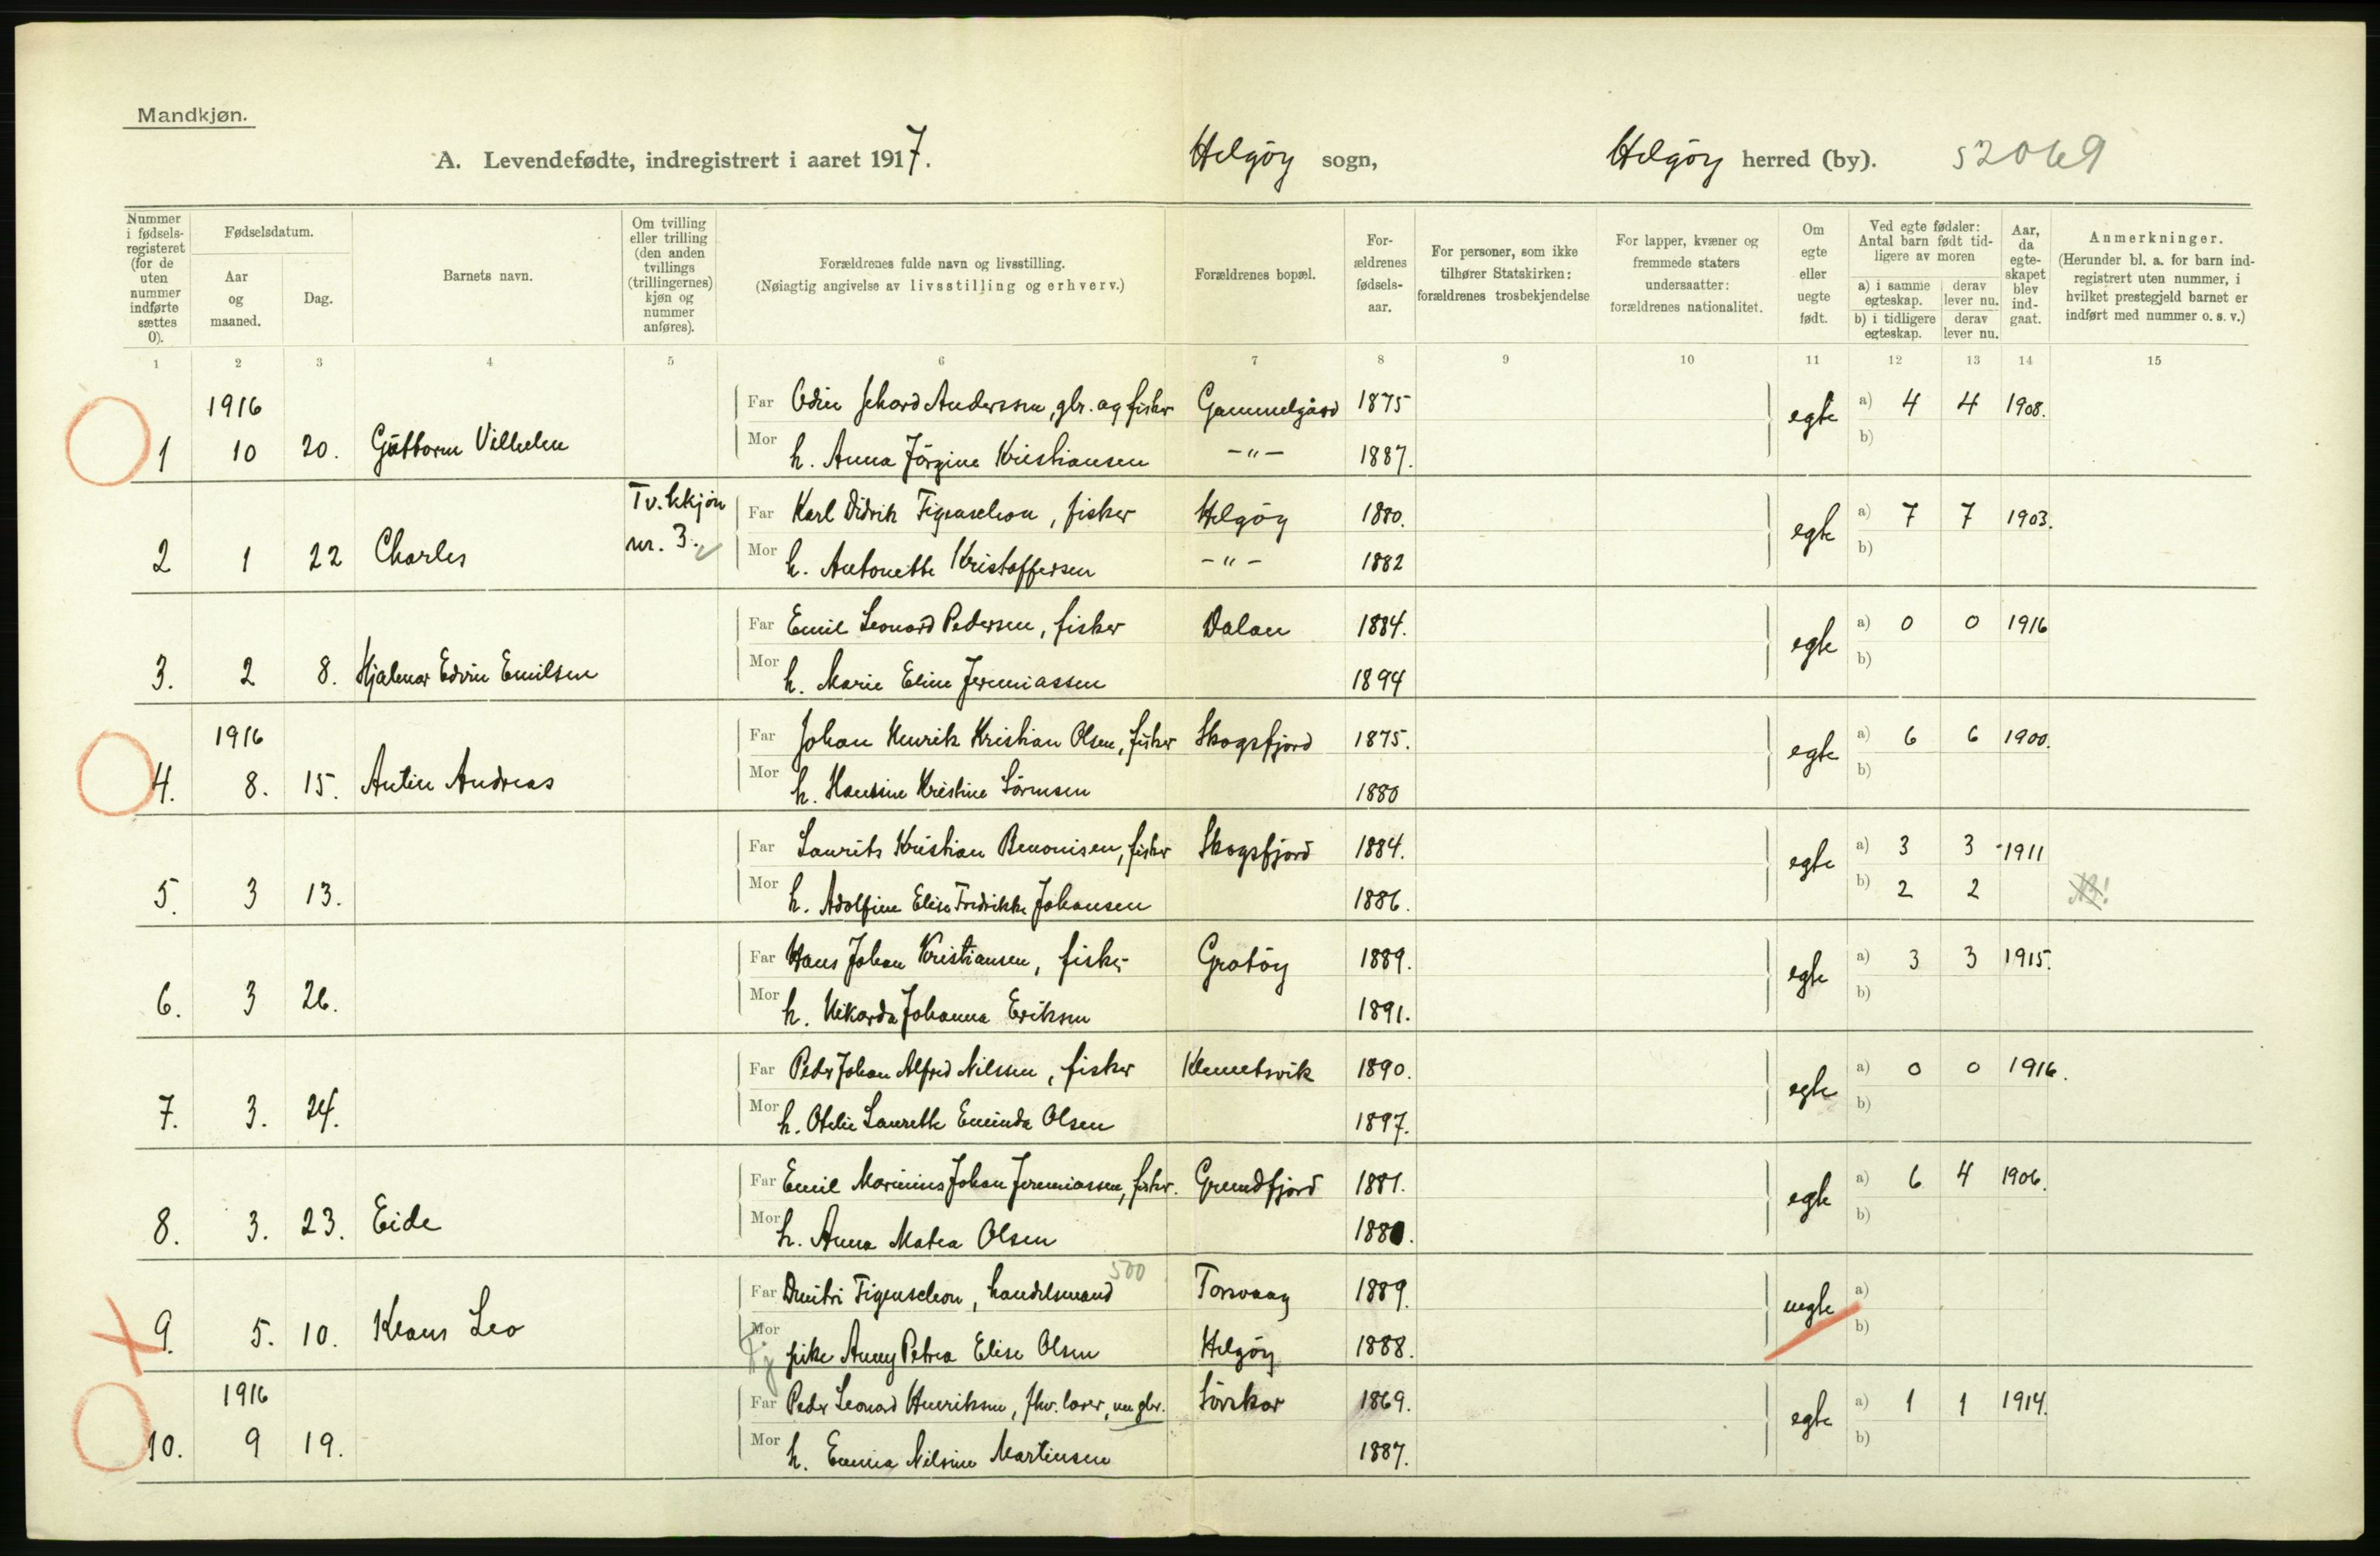 Mandkjøn.
A. Levendefødte, indregistrert i aaret 1917. Helgöy sogn, Helgöy herred (by). 52069
Nummer i fødsels-registeret (for de uten nummer indførte sættes 0).
Fødselsdatum.
Aar og maaned.
Dag.
Barnets navn.
Om tvilling eller trilling (den anden tvillings (trillingernes) kjøn og nummer anføres).
Forældrenes fulde navn og livsstilling.
(Nøiagtig angivelse av livsstilling og erhverv.)
Forældrenes bopæl.
For-ældrenes fødsels-aar.
For personer, som ikke tilhører Statskirken: forældrenes trosbekjendelse
For lapper, kvæner og fremmede staters undersaatter: forældrenes nationalitet.
Om egte eller uegte født.
Ved egte fødsler: Antal barn født tid-ligere av moren
a) i samme egteskap. derav lever nu.
b) i tidligere egteskap. derav lever nu.
Aar, da egte-skapet blev ind-gaat.
Anmerkninger.
(Herunder bl. a. for barn ind-registrert uten nummer, i hvilket prestegjeld barnet er indført med nummer o. s. v.)
1 2 3 4 5 6 7 8 9 10 11 12 13 14 15
1916 Far Odin Andersen, gbr. og fisker Gammelgård 1875 egte a) 4 4 1908.
1 10 20. Guttorm Vilhelm Mor h. Anna Jörgine Kristiansen -"- 1887. b)
Tv. kkjön Far Karl Didrik Figenschou, fisker Helgöy 1880. egte a) 7 7 1903.
2 1 22 Charles nr. 3. Mor h. Antonette Kristoffersen -"- 1882 b)
Far Emil Leonard Pedersen, fisker Dalan 1884. egte a) 0 0 1916
3. 2 8. Hjalmar Edvin Emilsen Mor h. Marie Eline Jeremiassen 1894 b)
1916 Far Johan Henrik Kristian Olsen, fisker Skogsfjord 1875. egte a) 6 6 1900.
4. 8. 15. Antin Andreas Mor h. Hansine Kristine Sörensen 1880 b)
Far Laurits Kristian Benonisen, fisker Skogsfjord 1884. egte a) 3 3 1911
5. 3 13. Mor h. Adolfine Elise Fredrikke Johansen 1886. b) 2 2
Far Hans Johan Kristiansen, fisker Grotöy 1889. egte a) 3 3 1915.
6. 3 26. Mor h. Johanna Eriksen 1891. b)
Far Peder Johan Alfred Nilssen, fisker Klemetsvik 1890. egte a) 0 0 1916.
7. 3. 24. Mor h. Otelie Laurette Eminda Olsen 1897. b)
Far Emil Marinius Johan Jeremiassen, fisker. Grundfjord 1881. egte a) 6 4 1906.
8. 3. 23. Eide Mor h. Anna Matea Olsen 1880. b)
500
Far Dmitri Figenschou, handelsmand Torsvaag 1889. uegte a)
9. 5. 10. Klaus Leo Mor pike Anny Petrea Elise Olsen Helgöy 1888. b)
1916 Far Peder Leonard Henriksen, fhv. lærer, nu gbr. Sörskar 1869. egte a) 1 1 1914.
10. 9 19. Mor h. Emma Nilsine Martinsen 1887. b)